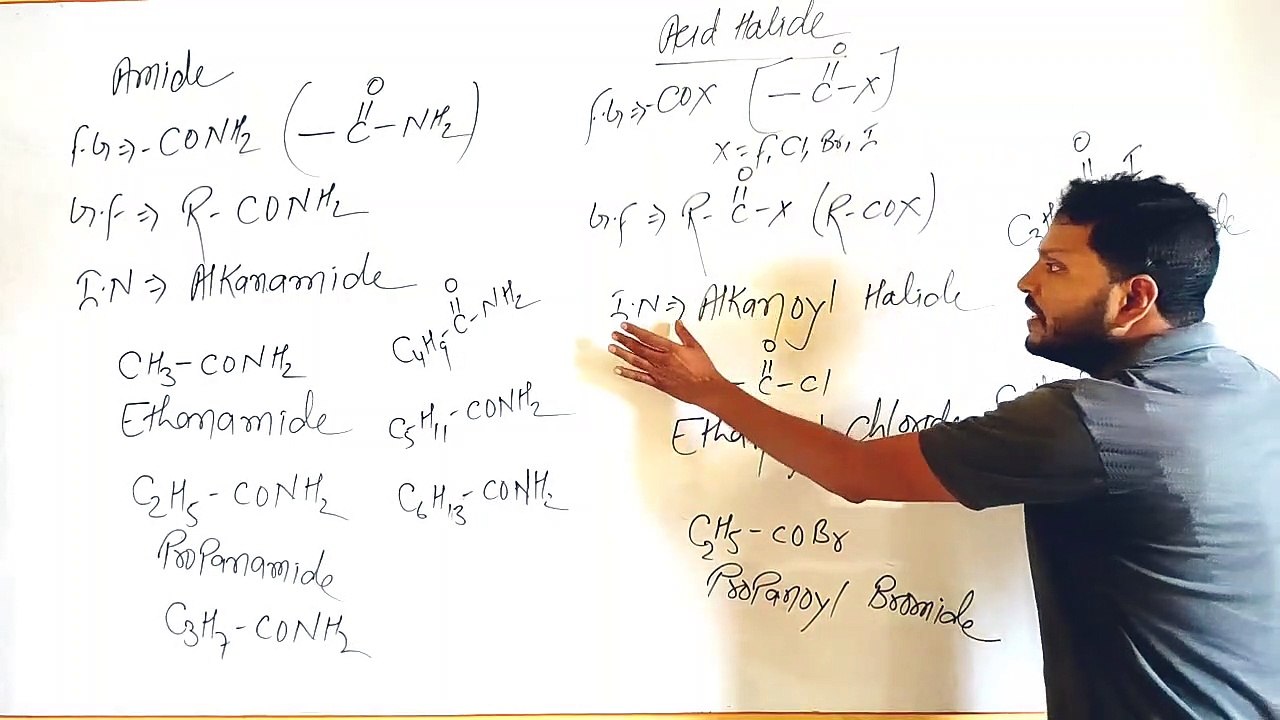 Amide
F.G ⇒ -CONH2 ( -C-NH2 )
O
G.F ⇒ R-CONH2
I.N ⇒ Alkanamide
CH3-CONH2
Ethanamide
C2H5-CONH2
Propanamide
C3H7-CONH2
O
C4H9-C-NH2
C5H11-CONH2
C6H13-CONH2
Acid Halide
O
F.G ⇒ -COX [ -C-X ]
X = F, Cl, Br, I
O
G.F ⇒ R-C-X (R-COX)
I.N ⇒ Alkanoyl Halide
O
-C-Cl
Chloride
C2H5-COBr
Propanoyl Bromide
O
I
C2H